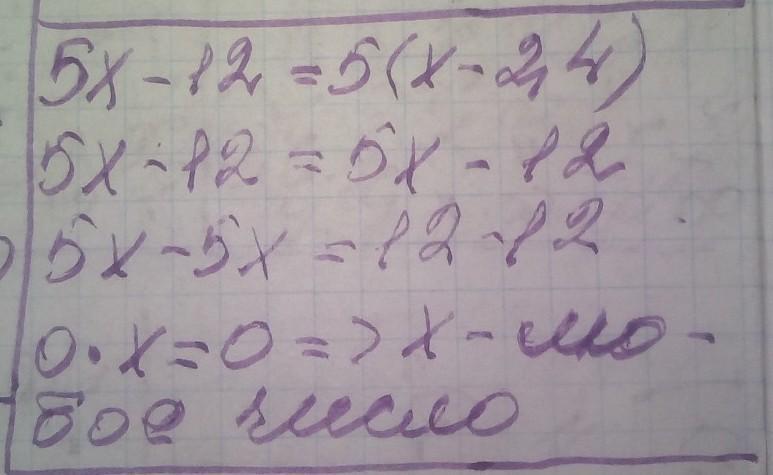 5x - 12 = 5(x - 2,4)
5x - 12 = 5x - 12
5x - 5x = 12 - 12
0 · x = 0 => x - лю-
бое число